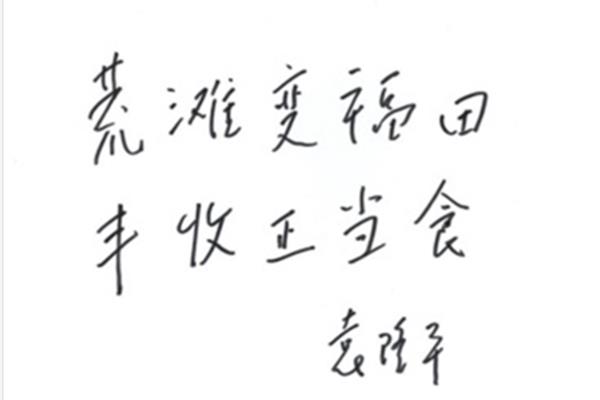 荒滩变福田
丰收正当食
袁隆平